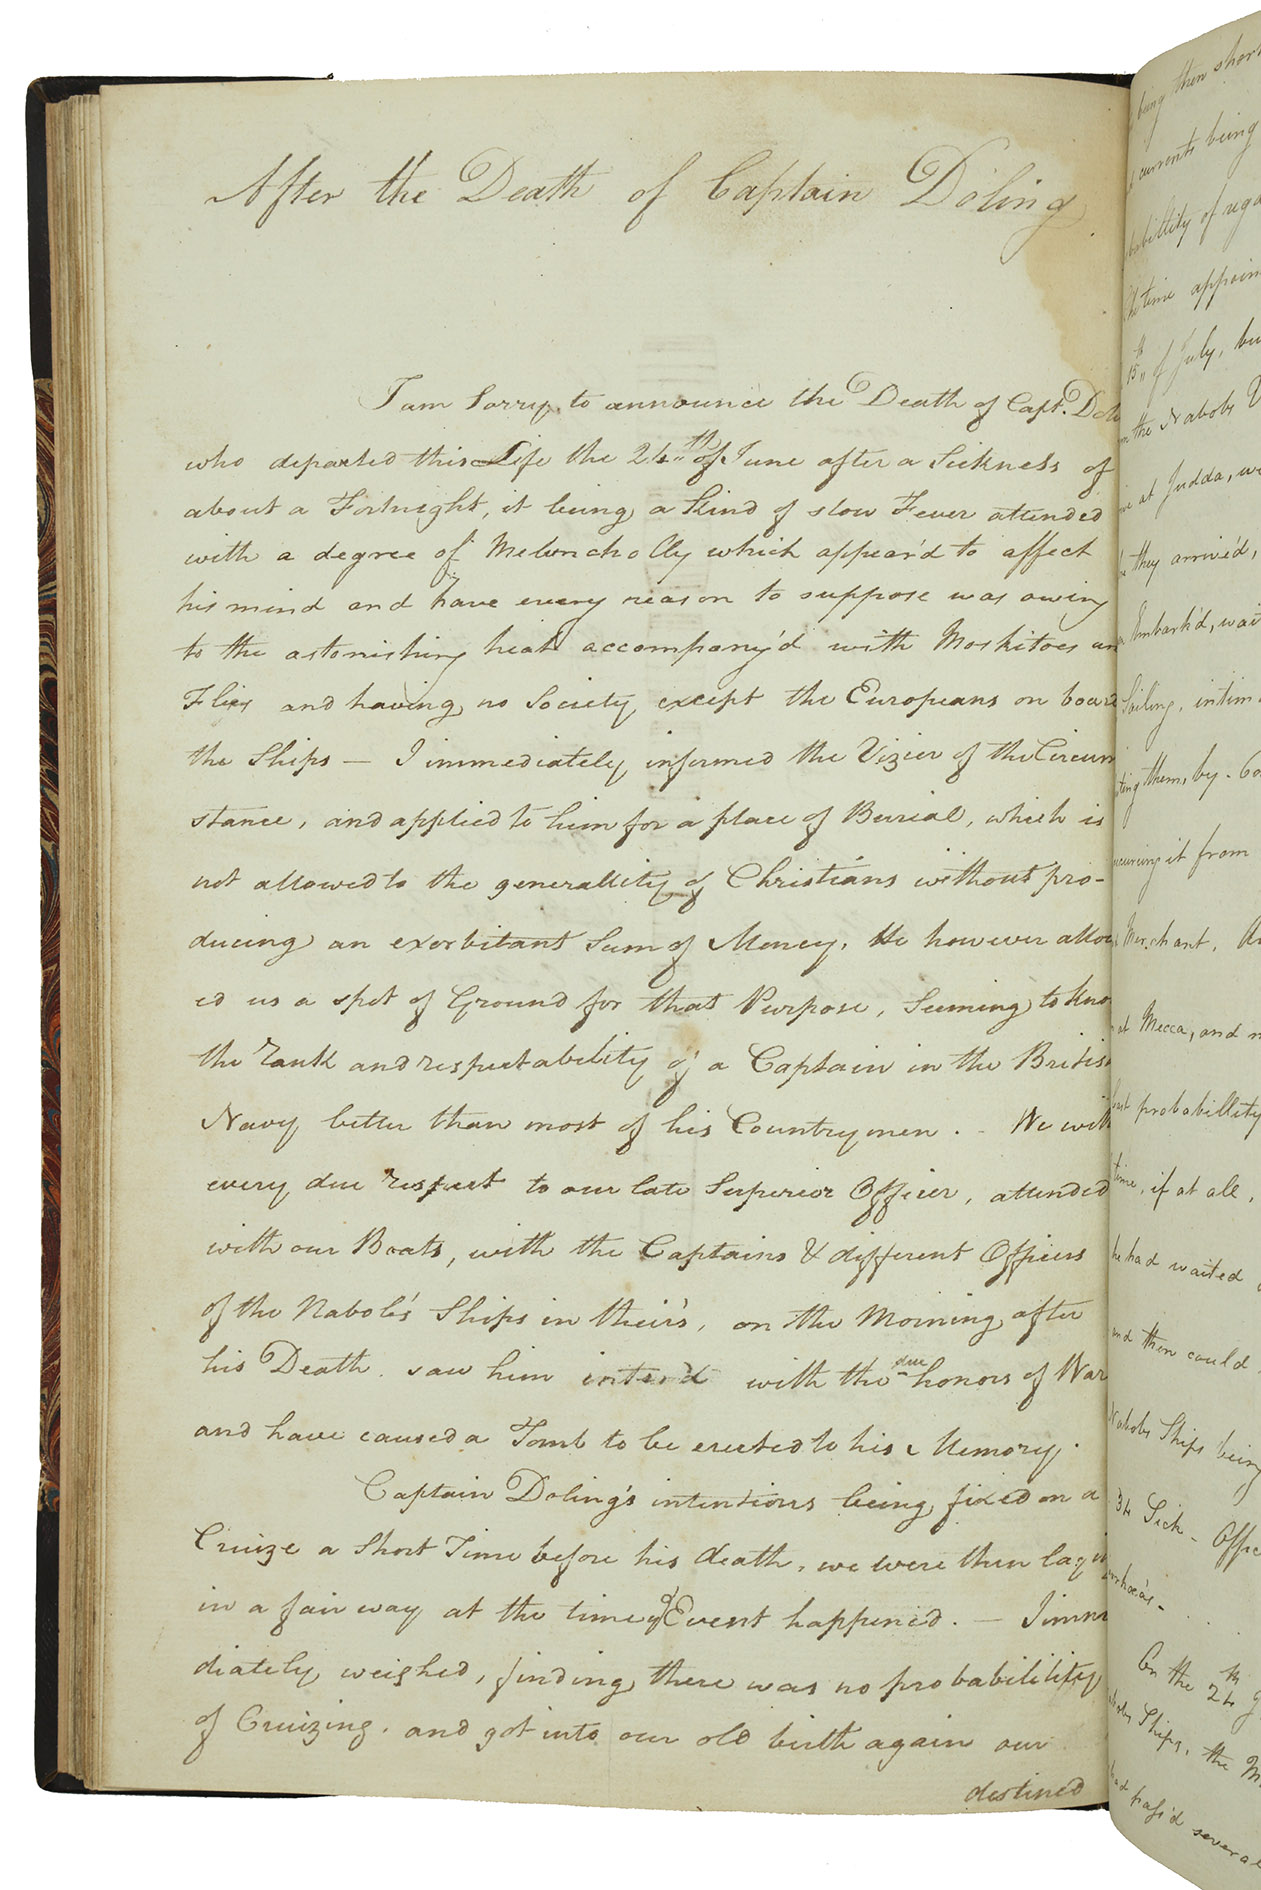 After the Death of Captain Doling
I am Sorry, to announce the Death of Capt. Dol
who departed this Life the 24th of June after a Sickness of
about a Fortnight, it being a kind of slow Fever attended
with a degree of Meloncholly which appear'd to affect
his mind and have every reason to suppose was owing
to the astonishing heat accompany'd with Moskitoes an
Flies and having no Society except the Europeans on board
the Ships — I immediately informed the Vizier of the Circum
stance, and applied to him for a place of Burial, which is
not allowed to the generallity of Christians without pro-
ducing an exorbitant Sum of Money. He however allow
ed us a spot of Ground for that Purpose, Seeming to kno
the rank and respectability of a Captain in the British
Navy better than most of his Countrymen. - We with
every due respect to our late Superior Officer, attended
with our Boats, with the Captains & different Officers
of the Nabob's Ships in their's, on the Morning after
his Death. saw him inter'd with the due honors of War
and have caused a Tomb to be erected to his Memory.
Captain Doling's intentions being fixed on a
Cruize a Short Time before his death, we were then lay
in a fair way at the time of Event happened. — I imme
diately weighed, finding there was no probabilility
of Cruizing. and got into our old birth again our
destined
being then short
currents being
babillity of
the time appoin
15th of July, bu
the Nabobs
at Judda, we
they arrived,
Embark'd, wai
Sailing, intim
ting them, by
it from
Merchant.
at Mecca, and
probabillity
time, if at all,
he had waited
and then could
Nabobs Ships being
34 Sick - Offic
On the 24th
Ships, the
pass'd several